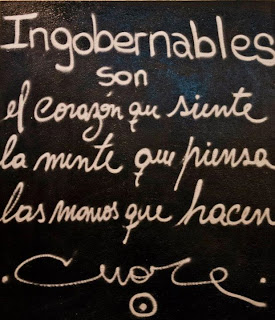 Ingobernables
son
el corazón que siente
la mente que piensa
las manos que hacen
. Cuore .